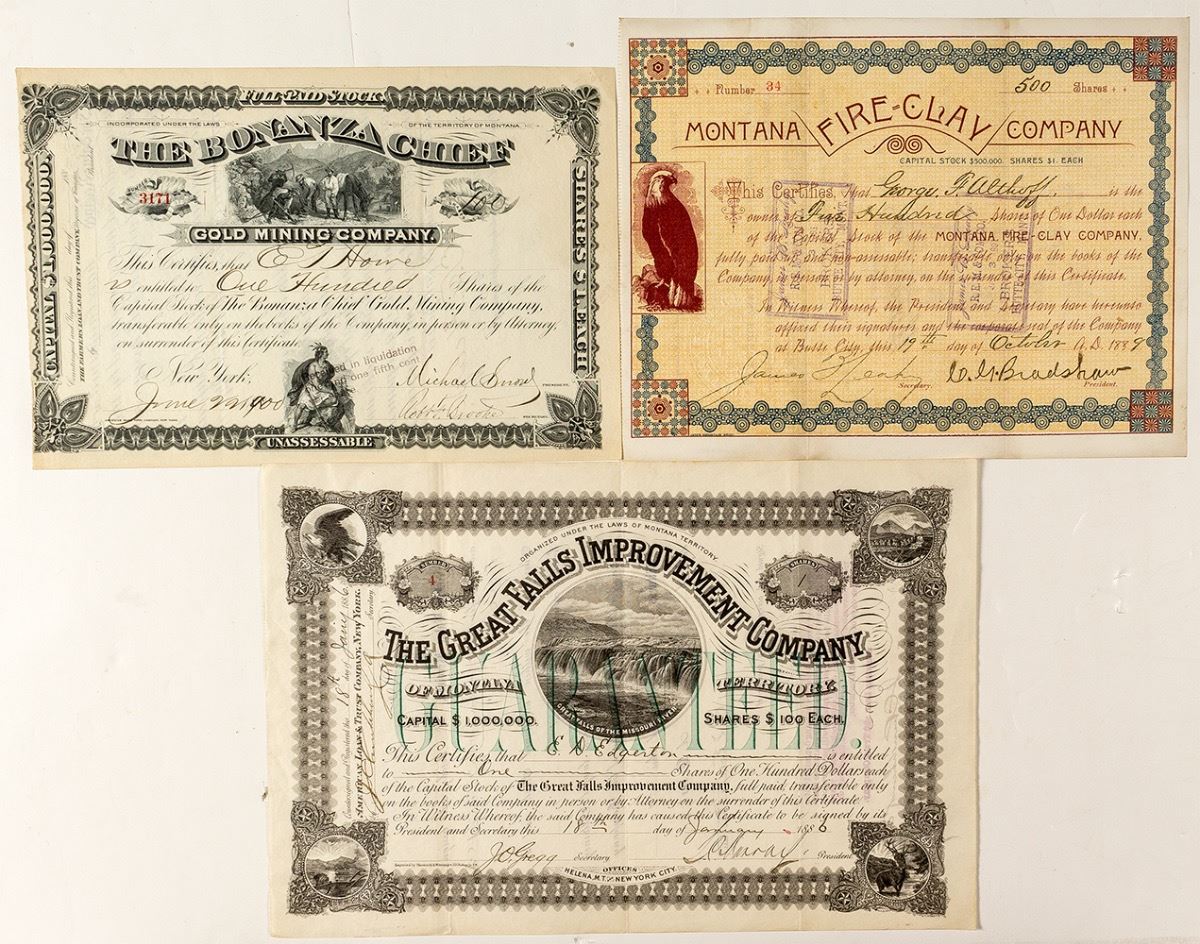 FULL-PAID STOCK
INCORPORATED UNDER THE LAWS OF THE TERRITORY OF MONTANA.
THE BONANZA CHIEF
3171
100
GOLD MINING COMPANY.
CAPITAL $1,000,000.
SHARES $1 EACH
THE FARMERS LOAN AND TRUST COMPANY,
This Certifies, that E T Howe
is entitled to One Hundred Shares of the
Capital Stock of The Bonanza Chief Gold Mining Company,
transferable only on the books of the Company, in person or by Attorney,
on surrender of this Certificate.
in liquidation
one fifth cent
New York,
June 22 1900
Michael
PRESIDENT.
SECRETARY.
UNASSESSABLE
Number 34
500 Shares
MONTANA FIRE-CLAY COMPANY
CAPITAL STOCK $500,000. SHARES $1. EACH
This Certifies, that George F. Althoff. is the
owner of Five Hundred Shares of One Dollar each
of the Capital Stock of the MONTANA FIRE-CLAY COMPANY,
fully paid and non-assessable; transferable only on the books of the
Company, in person or by attorney, on the endorsement of this Certificate.
In Witness Whereof, the President and Secretary have hereunto
affixed their signatures and the corporate seal of the Company
at Butte City, this 19th day of October A.D. 1889
James Leah
C. H. Bradshaw
Secretary.
President.
ORGANIZED UNDER THE LAWS OF MONTANA TERRITORY.
NUMBER
4
SHARES
1
THE GREAT FALLS IMPROVEMENT COMPANY,
OF MONTANA TERRITORY.
GUARANTEED.
CAPITAL $1,000,000.
SHARES $100 EACH.
GREAT FALLS OF THE MISSOURI RIVER
Countersigned and Registered this 18th day of Jan'y 1886
AMERICAN LOAN & TRUST COMPANY, NEW YORK.
Secretary.
This Certifies that E D Edgerton is entitled
to One Shares of One Hundred Dollars each
of the Capital Stock of The Great Falls Improvement Company, full paid, transferable only on
the books of said Company in person or by Attorney on the surrender of this Certificate
In Witness Whereof, the said Company has caused this Certificate to be signed by its
President and Secretary this 18th day of January 1886
J O Gregg Secretary
President
OFFICES
HELENA, M.T. & NEW YORK CITY.